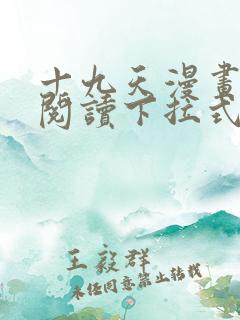 十九天漫畫
閱讀下拉式
王毅群
未經同意禁止轉載